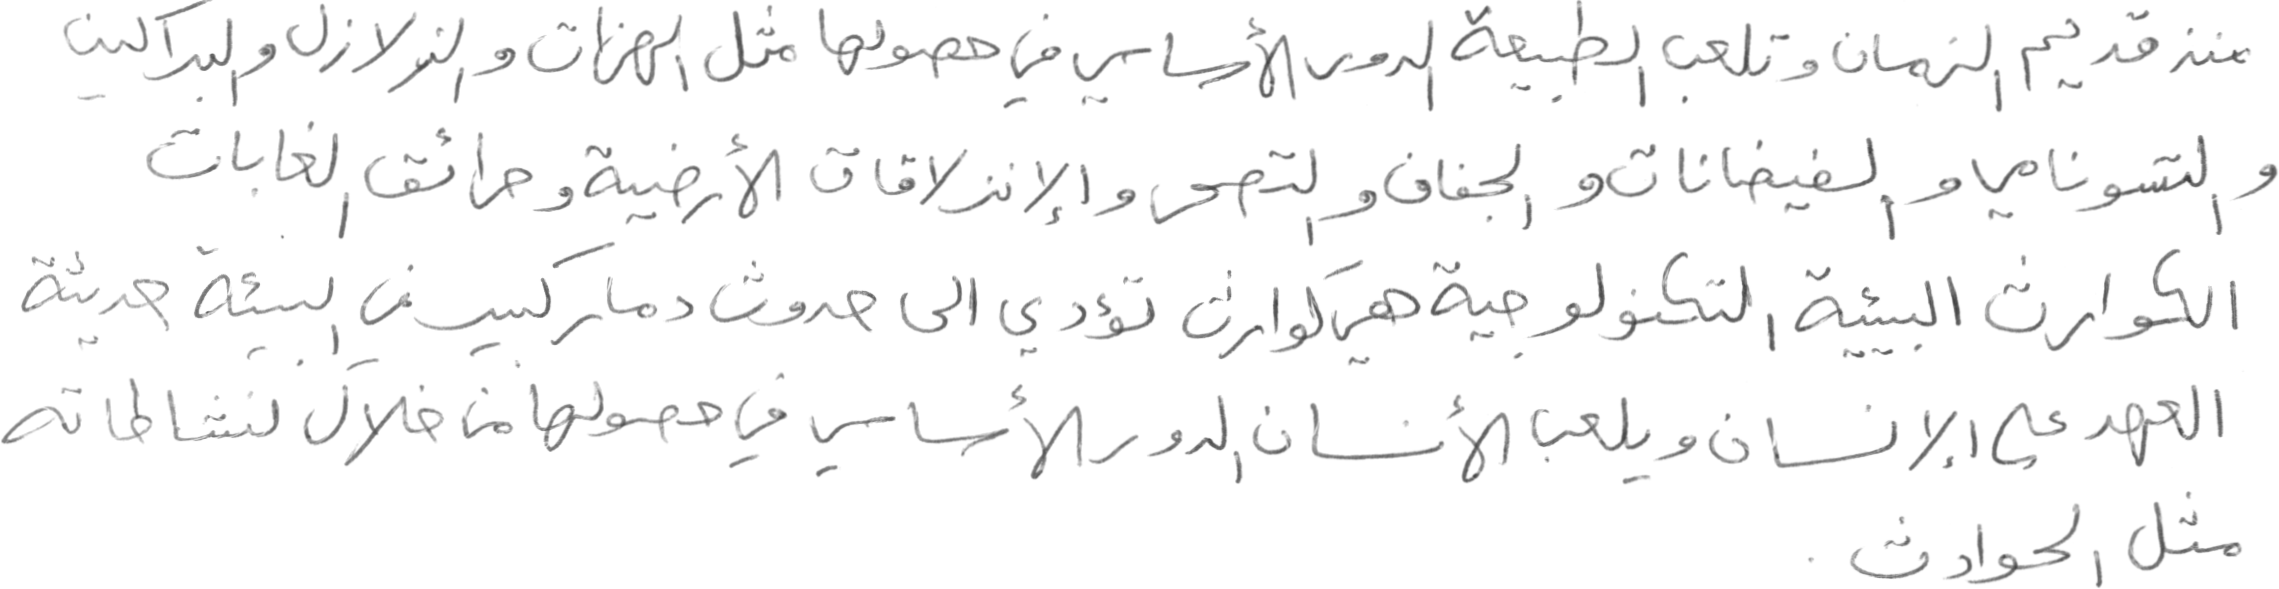 منذ قديم الزمان وتلعب الطبيعة الدور الأساسي في حصولها مثل الهزات والزلازل والبراكين
والتسونامي والفيضانات والجفاف والتصحر والإنزلاقات الأرضية وحرائق الغابات
الكوارث البيئية التكنولوجية هي كوارث تؤدي الى حدوث دمار كبير في البيئة حديثة
العهد على الإنسان ويلعب الأنسان الدور الأساسي في حصولها من خلال نشاطاته
مثل الحوادث .